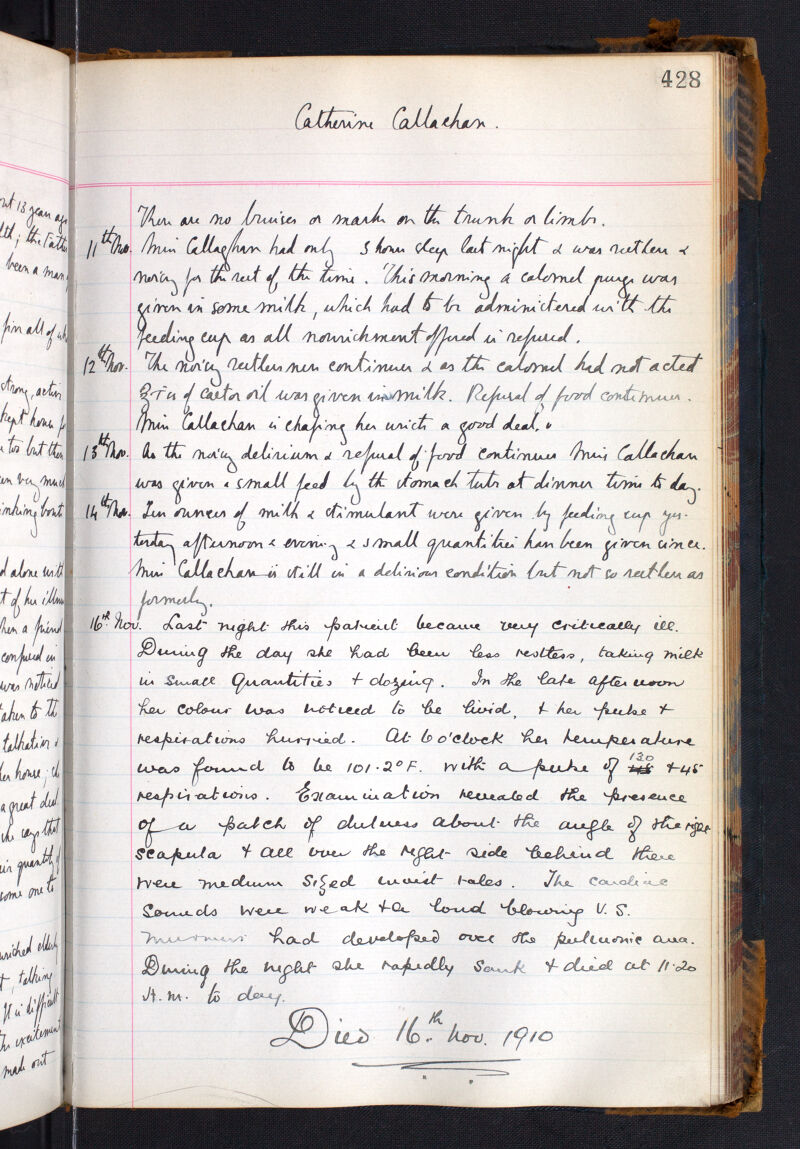 428
Catherine Callachan.
There are no bruises or marks on the trunk or limbs.
11th Nov. Miss Callaghan had only 3 hours sleep last night & was restless &
noisy for the rest of the time. This morning a calomel purge was
given in some milk, which had to be administered with the
feeding cup as all nourishment offered is refused.
12th Nov. The noisy restlessness continues & as the calomel had not acted
of castor oil was given in milk. Refusal of food continues.
Miss Callachan is chafing her wrists a good deal.
13th Nov. As the noisy delirium & refusal of food continues Miss Callachan
was given a small feed by the stomach tube at dinner time to day.
14th Nov. Ten ounces of milk & stimulant were given by feeding cup yes-
terday afternoon & evening & small quantities have been given since.
Miss Callachan is still in a delirious condition but not so restless as
formerly.
16th Nov. Last night this patient became very critically ill.
During the day she had been less restless, taking milk
in small quantities & dozing. In the late afternoon
her colour was noticed to be livid, & her pulse &
respirations hurried. At 6 o'clock her temperature
was found to be 101.2°F. with a pulse of 130 & 45
respirations. Examination revealed the presence
of a patch of dulness about the angle of the right
scapula & all over the right side behind there
were medium sized moist rales. The cardiac
sounds were weak & a loud blowing V.S.
murmur had developed over the pulmonic area.
During the night she rapidly sank & died at 11.20
A.m. to day.
Died 16th Nov. 1910
out 13 years ago
been a man
strong, active
kept house
too but then
very much
drinking bout
alone with
of her illness
then a friend
confused in
was noticed
taken to the
talkative &
her house; she
a great deal
she says that
quantity of
some one to
elderly
talking
It is difficult
the excitement
made out